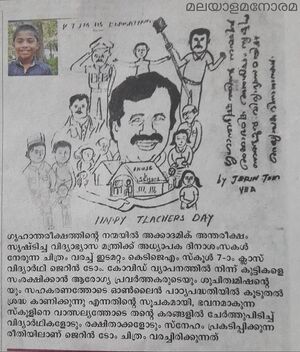 മലയാളമനോരമ
HAPPY TEACHERS DAY
by JERIN TOM
ഗൃഹാന്തരീക്ഷത്തിന്റെ നന്മയിൽ അക്കാദമിക് അന്തരീക്ഷം
സൃഷ്ടിച്ച വിദ്യാഭ്യാസ മന്ത്രിക്ക് അധ്യാപക ദിനാശംസകൾ
നേരുന്ന ചിത്രം വരച്ച് ഇടമറ്റം കെടിജെഎം സ്കൂൾ 7-ാം ക്ലാസ്
വിദ്യാർഥി ജെറിൻ ടോം. കോവിഡ് വ്യാപനത്തിൽ നിന്ന് കുട്ടികളെ
സംരക്ഷിക്കാൻ ആരോഗ്യ പ്രവർത്തകരുടെയും ശുചിത്വമിഷന്റെ
യും സഹകരണത്തോടെ ഓൺലൈൻ പാഠ്യപദ്ധതിയിൽ കൂടുതൽ
ശ്രദ്ധ കാണിക്കുന്നു എന്നതിന്റെ സൂചകമായി, ഭവനമാകുന്ന
സ്കൂളിനെ വാത്സല്യത്തോടെ തന്റെ കരങ്ങളിൽ ചേർത്തുപിടിച്ച്
വിദ്യാർഥികളോടും രക്ഷിതാക്കളോടും സ്നേഹം പ്രകടിപ്പിക്കുന്ന
രീതിയിലാണ് ജെറിൻ ടോം ചിത്രം വരച്ചിരിക്കുന്നത്